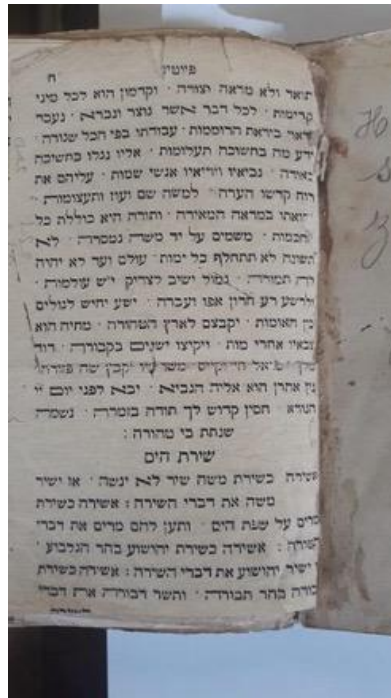 פיוטין
ח
תואר ולא מראה וצורה · וקדמון הוא לכל מיני
קדימות · לכל דבר אשר נוצר ונברא · נעבד
בי־ראת הרוממות · עבודתו בפי הכל שגורה ·
ידע מה בחשוכה תעלומות · אליו נגלו כחשיכה
כאורה · נביאיו אנשי שמות · עליהם את
רוח קדשו הערה · למשה שם ועוז ותעצומות ·
במראה המאירה · ותורה היא כוללת כל
חכמות · משמים על יד משה נמסרה · לא
תשונה לא תתחלף כל ימות · עולם ועד לא יהיה
לה תמורה · גמול ישיב לצדיק י״ש עולמות ·
ולרשע רע חרון אפו ועברה · ישע יחיש לגולים
בין האומות · יקבצם לארץ הטהורה · מחיה הוא
אחרי מות · ויקיצו ישנים בקבורה · דוד
שה פזורה ·
אליה הנביא · יבא לפני יום יי
הנורא · חסין קדוש לך תודה בזמרה · נשמה
שנתת בי טהורה :
שירת הים
אשירה כשירת משה שיר לא ינשה · אז ישיר
משה את דברי השירה : אשירה כשירת
מרים על שפת הים · ותען להם מרים את דברי
השירה : אשירה כשירת יהושוע בהר הגלבוע ·
ישיר יהושוע את דברי השירה : אשירה כשירת
דבורה בהר תבורה · ותשר דבורה את דברי
השירה